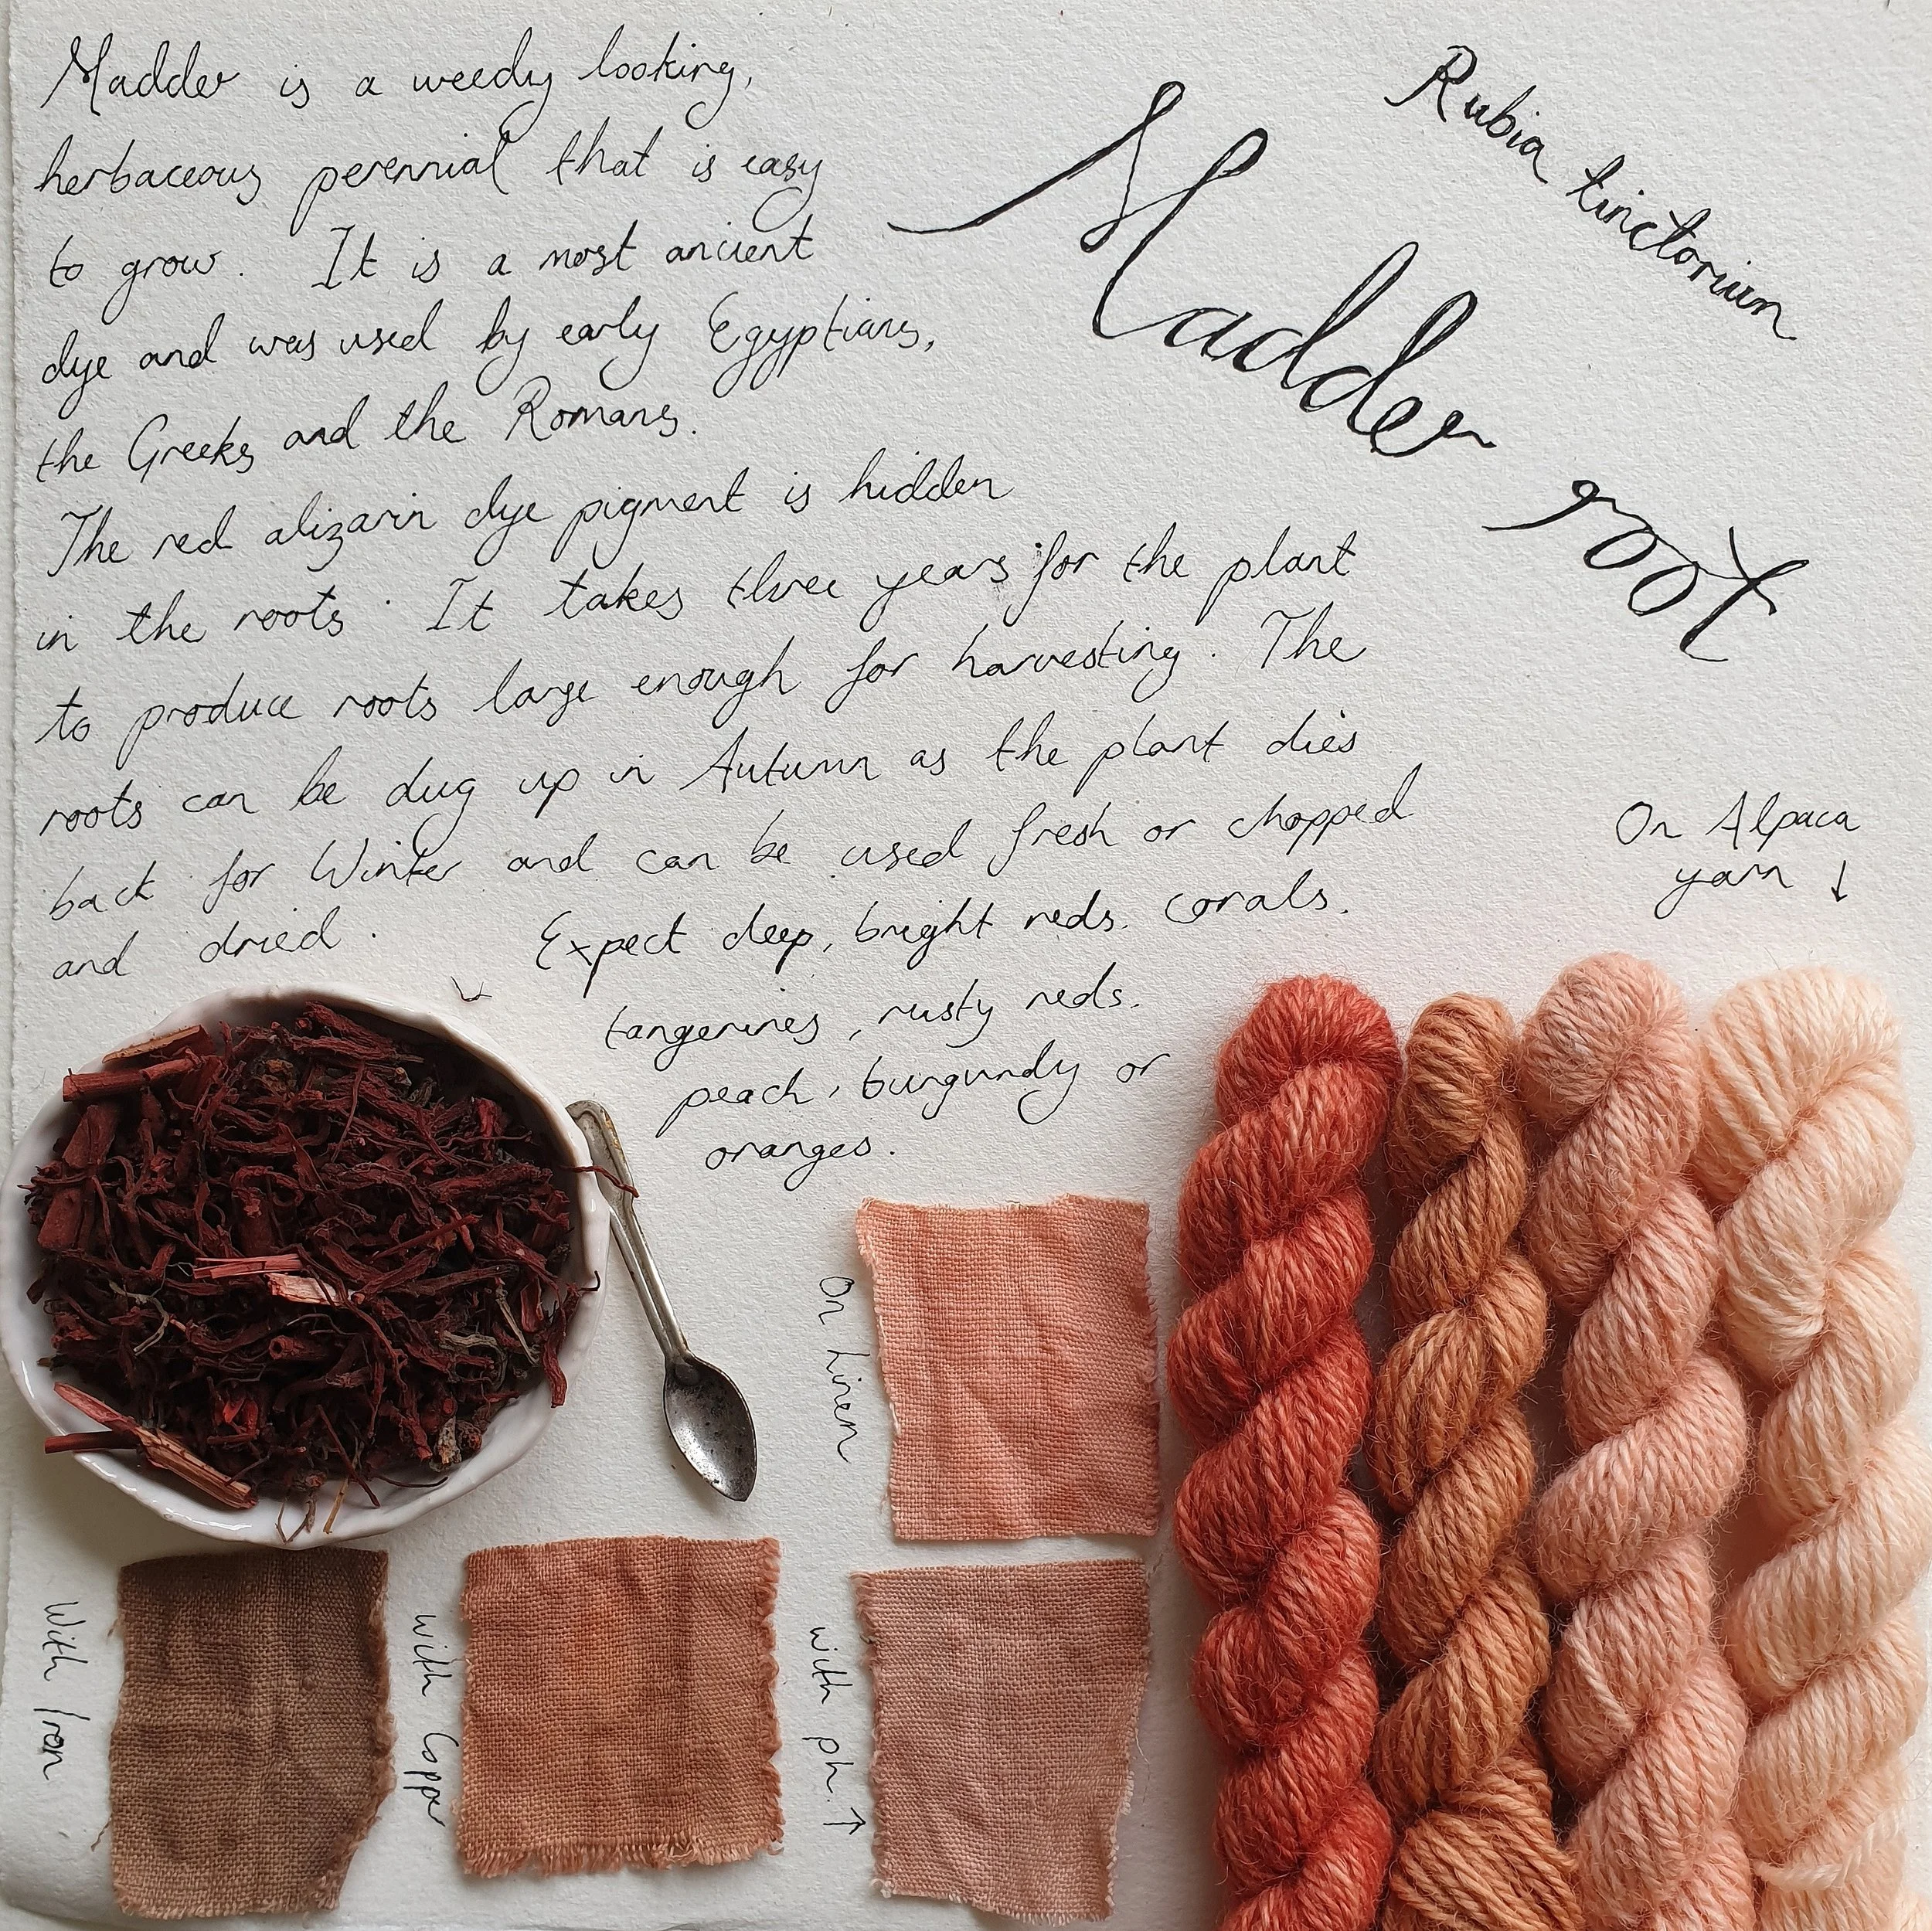 Madder is a weedy looking,
herbaceous perennial that is easy
to grow. It is a most ancient
dye and was used by early Egyptians,
the Greeks and the Romans.
The red alizarin dye pigment is hidden
in the roots. It takes three years for the plant
to produce roots large enough for harvesting. The
roots can be dug up in Autumn as the plant dies
back for Winter and can be used fresh or chopped
and dried.
Expect deep, bright reds. corals.
tangerines, rusty reds.
peach, burgundy or
oranges.
Rubia tinctorium
Madder root
On Alpaca
yarn ↓
On Linen
With Iron
with Copper
with ph. ↑